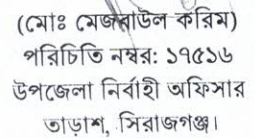 (মোঃ মেজবাউল করিম)
পরিচিতি নম্বর: ১৭৫১৬
উপজেলা নির্বাহী অফিসার
তাড়াশ, সিরাজগঞ্জ।